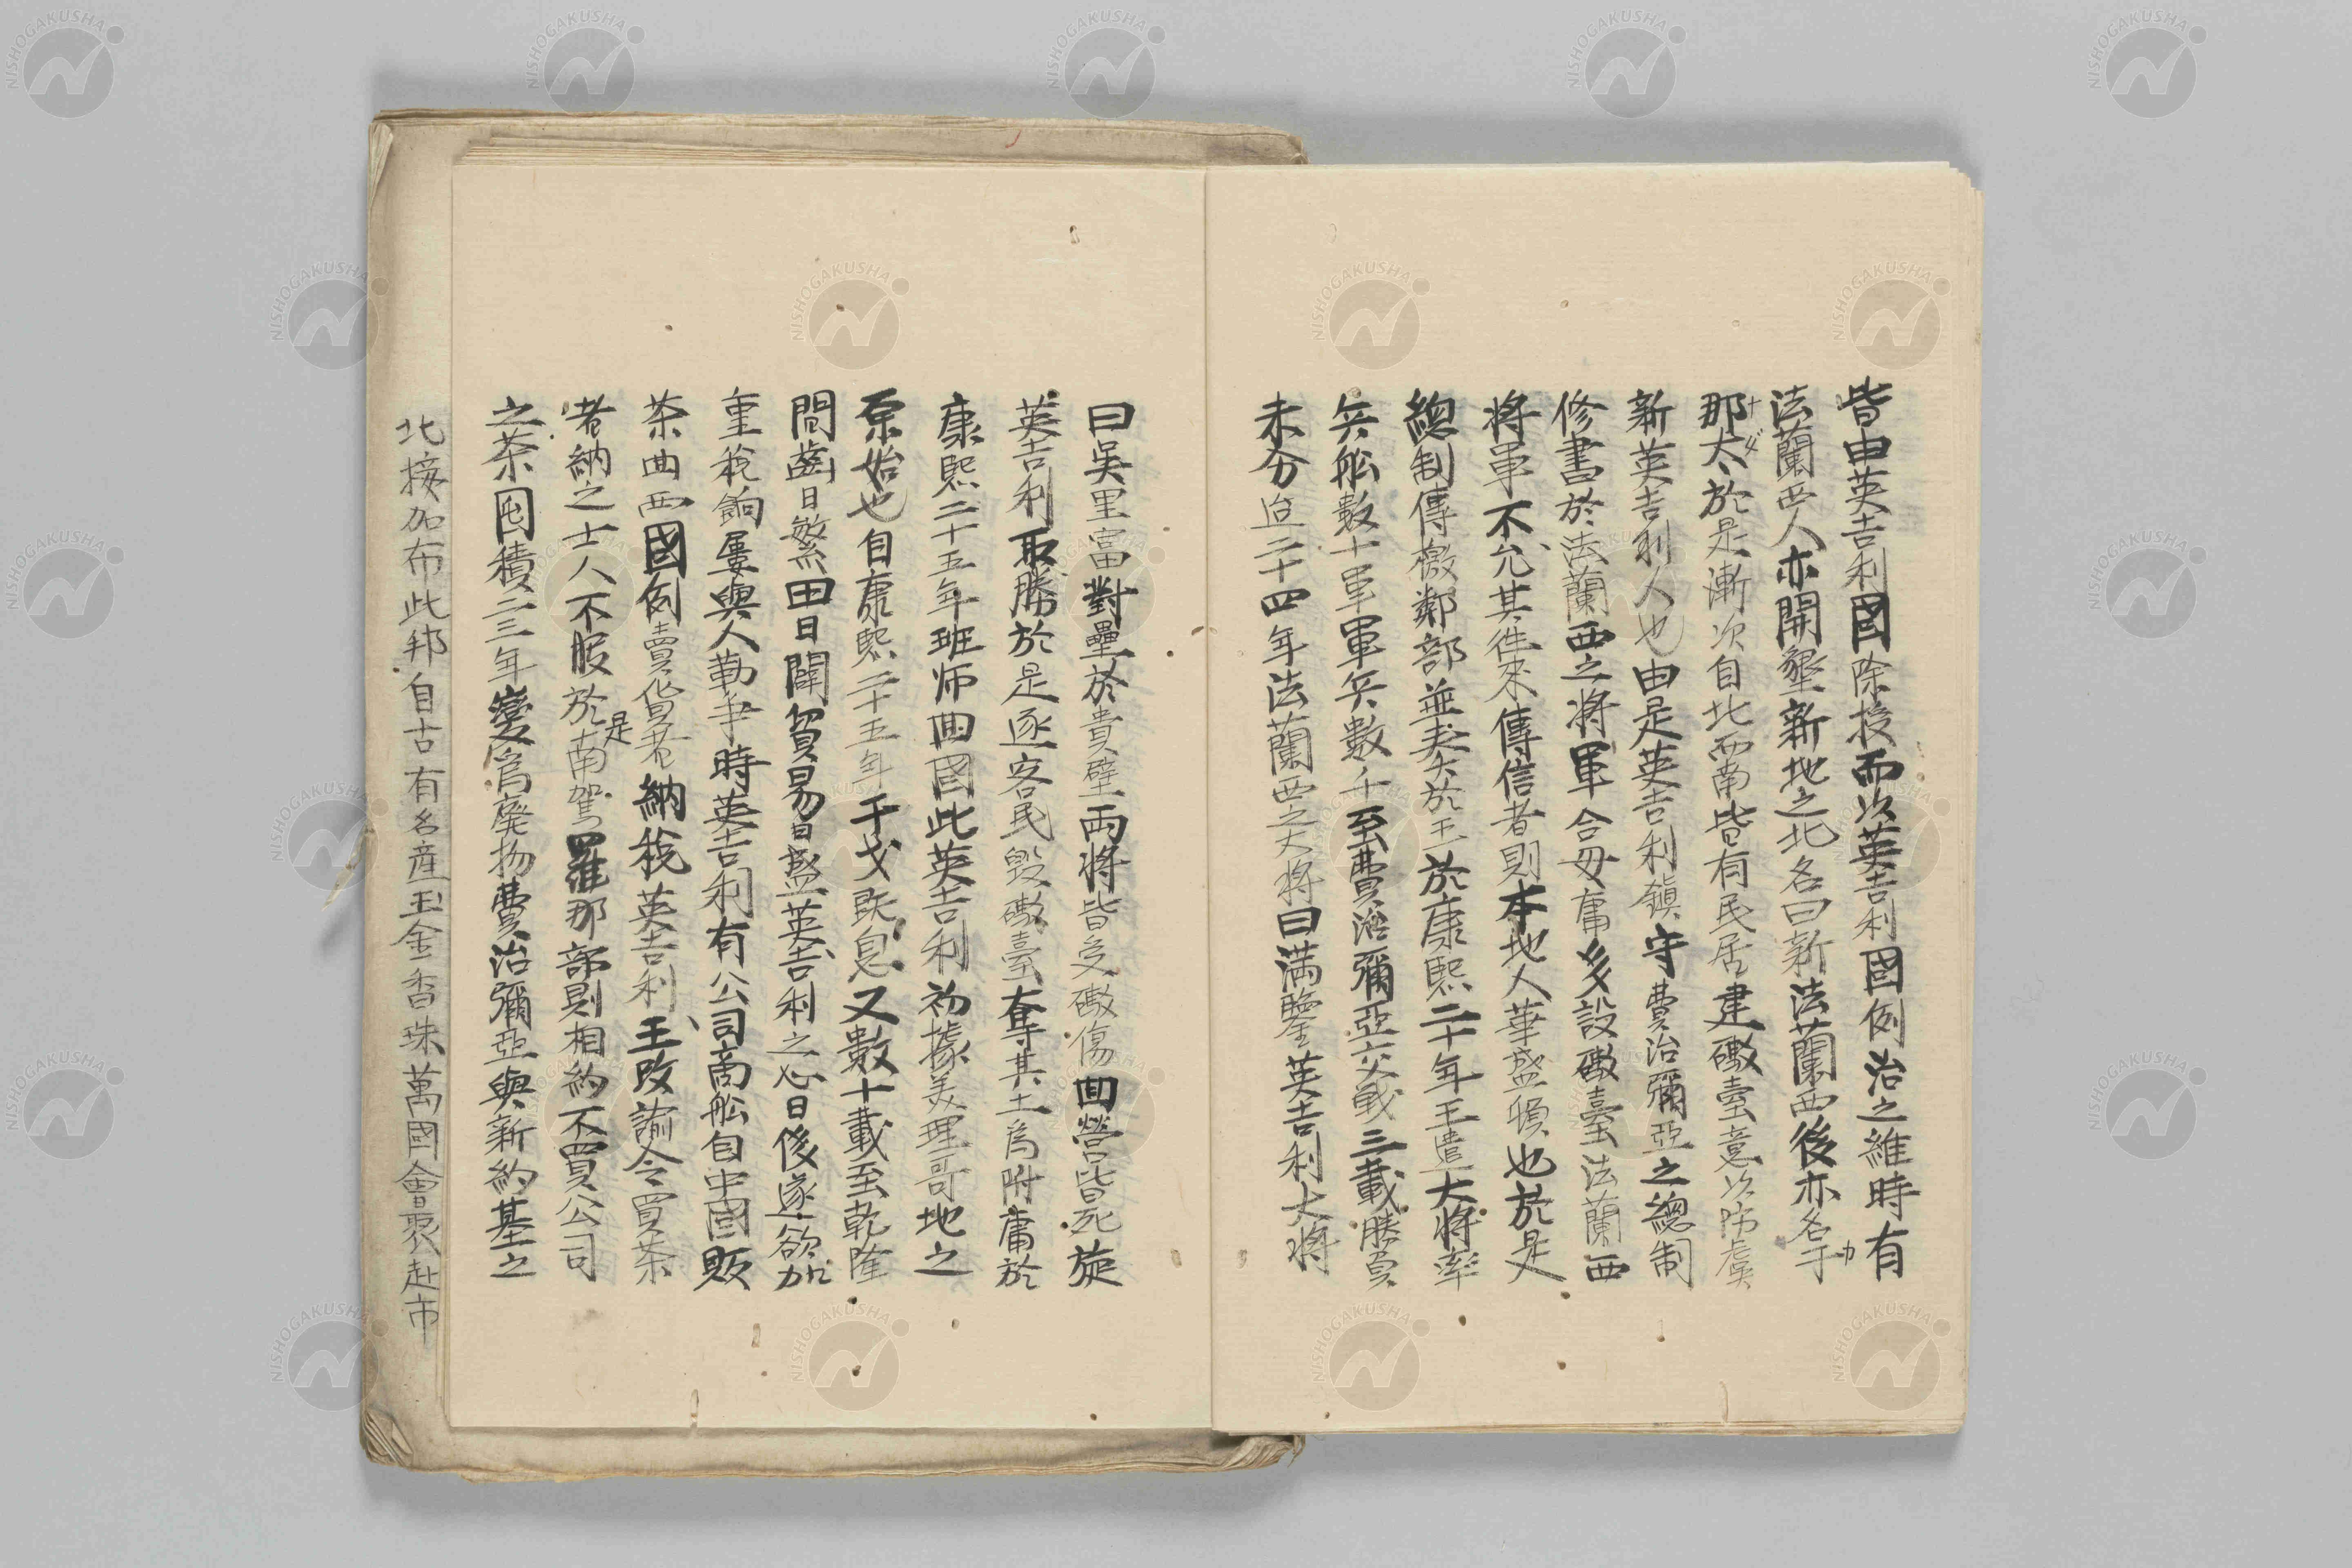 皆由英吉利國除授而以英吉利國例治之維時有
法蘭西人亦開墾新地之北名曰新法蘭西後亦名于
カ
那太於是漸次自北而南皆有民居建礮臺意以防虞
ナダ
新英吉利人也由是英吉利鎮守費治彌亞之總制
修書於法蘭西之將軍合毋庸多設礮臺法蘭西
將軍不允其徃來傳信者則本地人華盛頓也於是
總制傳檄鄰部並奏於王於康熙二十年王遣大將率
兵船數十軍軍兵數千至費治彌亞交戰三載勝負
未分迨二十四年法蘭西之大將曰満鑒英吉利大將
曰吳里富對壘於貴壁両將皆受礮傷囬營皆死旋
英吉利取勝於是逐客民毀礮臺奪其土為附庸於
康熙二十五年班师囬國此英吉利初據美理哥地之
原始也自康熙二十五年干戈既息又數十載至乾隆
間齒日繁田日闢貿易日盛英吉利之心日後遂欲加
重稅餉屢與人勒爭時英吉利有公司商船自中國販
茶囬西國例賣貨者納稅英吉利王改諭令買茶
者納之士人不服於是南駕羅那部則相約不買公司
之茶囤積二三年變為廢物費治彌亞與新約基之
北接加布此邦自古有名産玉金香珠萬國會聚赴市
NISHOGAKUSHA